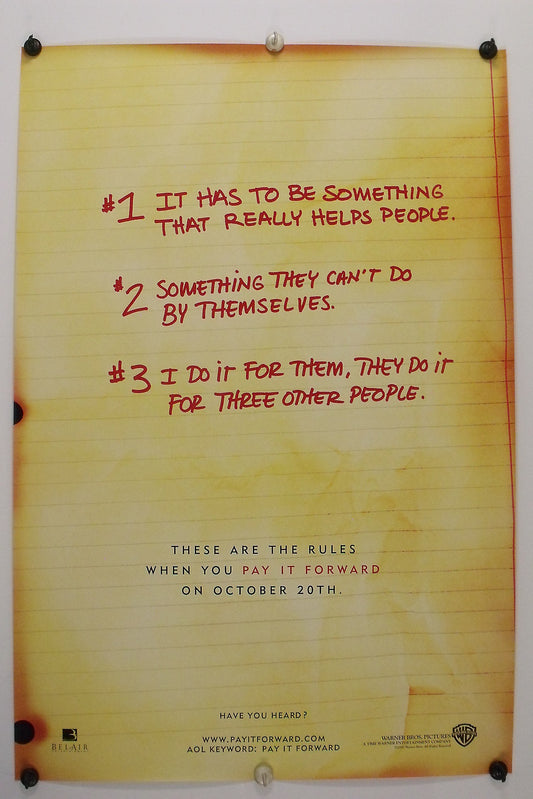 #1 IT HAS TO BE SOMETHING
THAT REALLY HELPS PEOPLE.
#2 SOMETHING THEY CAN'T DO
BY THEMSELVES.
#3 I DO iT FOR THEM, THEY DO iT
FOR THREE OTHER PEOPLE.
THESE ARE THE RULES
WHEN YOU PAY IT FORWARD
ON OCTOBER 20TH.
HAVE YOU HEARD?
WWW.PAYITFORWARD.COM
AOL KEYWORD: PAY IT FORWARD
BEL AIR
WARNER BROS. PICTURES
A TIME WARNER ENTERTAINMENT COMPANY
WB